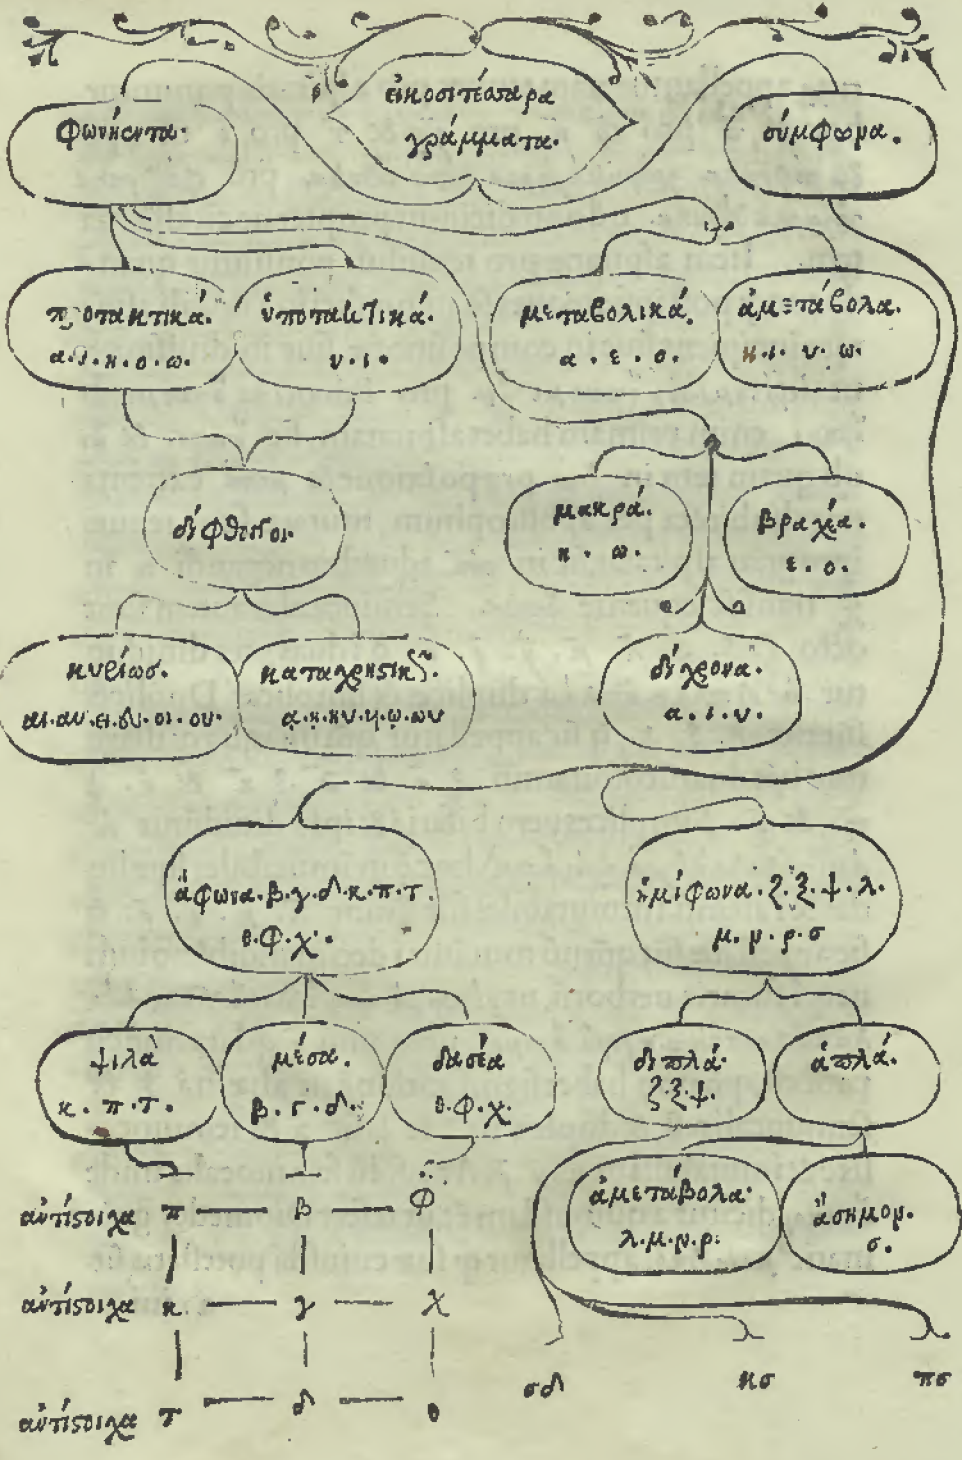 εἰκοσιτέσσαρα
γράμματα.
φωνήεντα.
σύμφωνα.
προτακτικά.
α. ε. η. ο. ω.
ὑποτακτικά.
υ. ι.
μεταβολικά.
α. ε. ο.
ἀμετάβολα.
η. ι. υ. ω.
δίφθογγοι.
μακρά.
η. ω.
βραχέα.
ε. ο.
κυρίως.
αι. αυ. ει. ευ. οι. ου.
καταχρηστικῶς.
ᾳ. ῃ. ηυ. υι. ῳ. ωυ
δίχρονα.
α. ι. υ.
ἄφωνα. β. γ. δ. κ. π. τ.
θ. φ. χ.
ἡμίφωνα. ζ. ξ. ψ. λ.
μ. ν. ρ. σ
ψιλὰ
κ. π. τ.
μέσα.
β. γ. δ.
δασέα
θ. φ. χ.
διπλᾶ.
ζ. ξ. ψ.
ἁπλά.
ἀμετάβολα.
λ. μ. ν. ρ.
ἄσημον.
σ.
ἀντίστοιχα π β φ
ἀντίστοιχα κ γ χ
ἀντίστοιχα τ δ θ
σδ κσ πσ